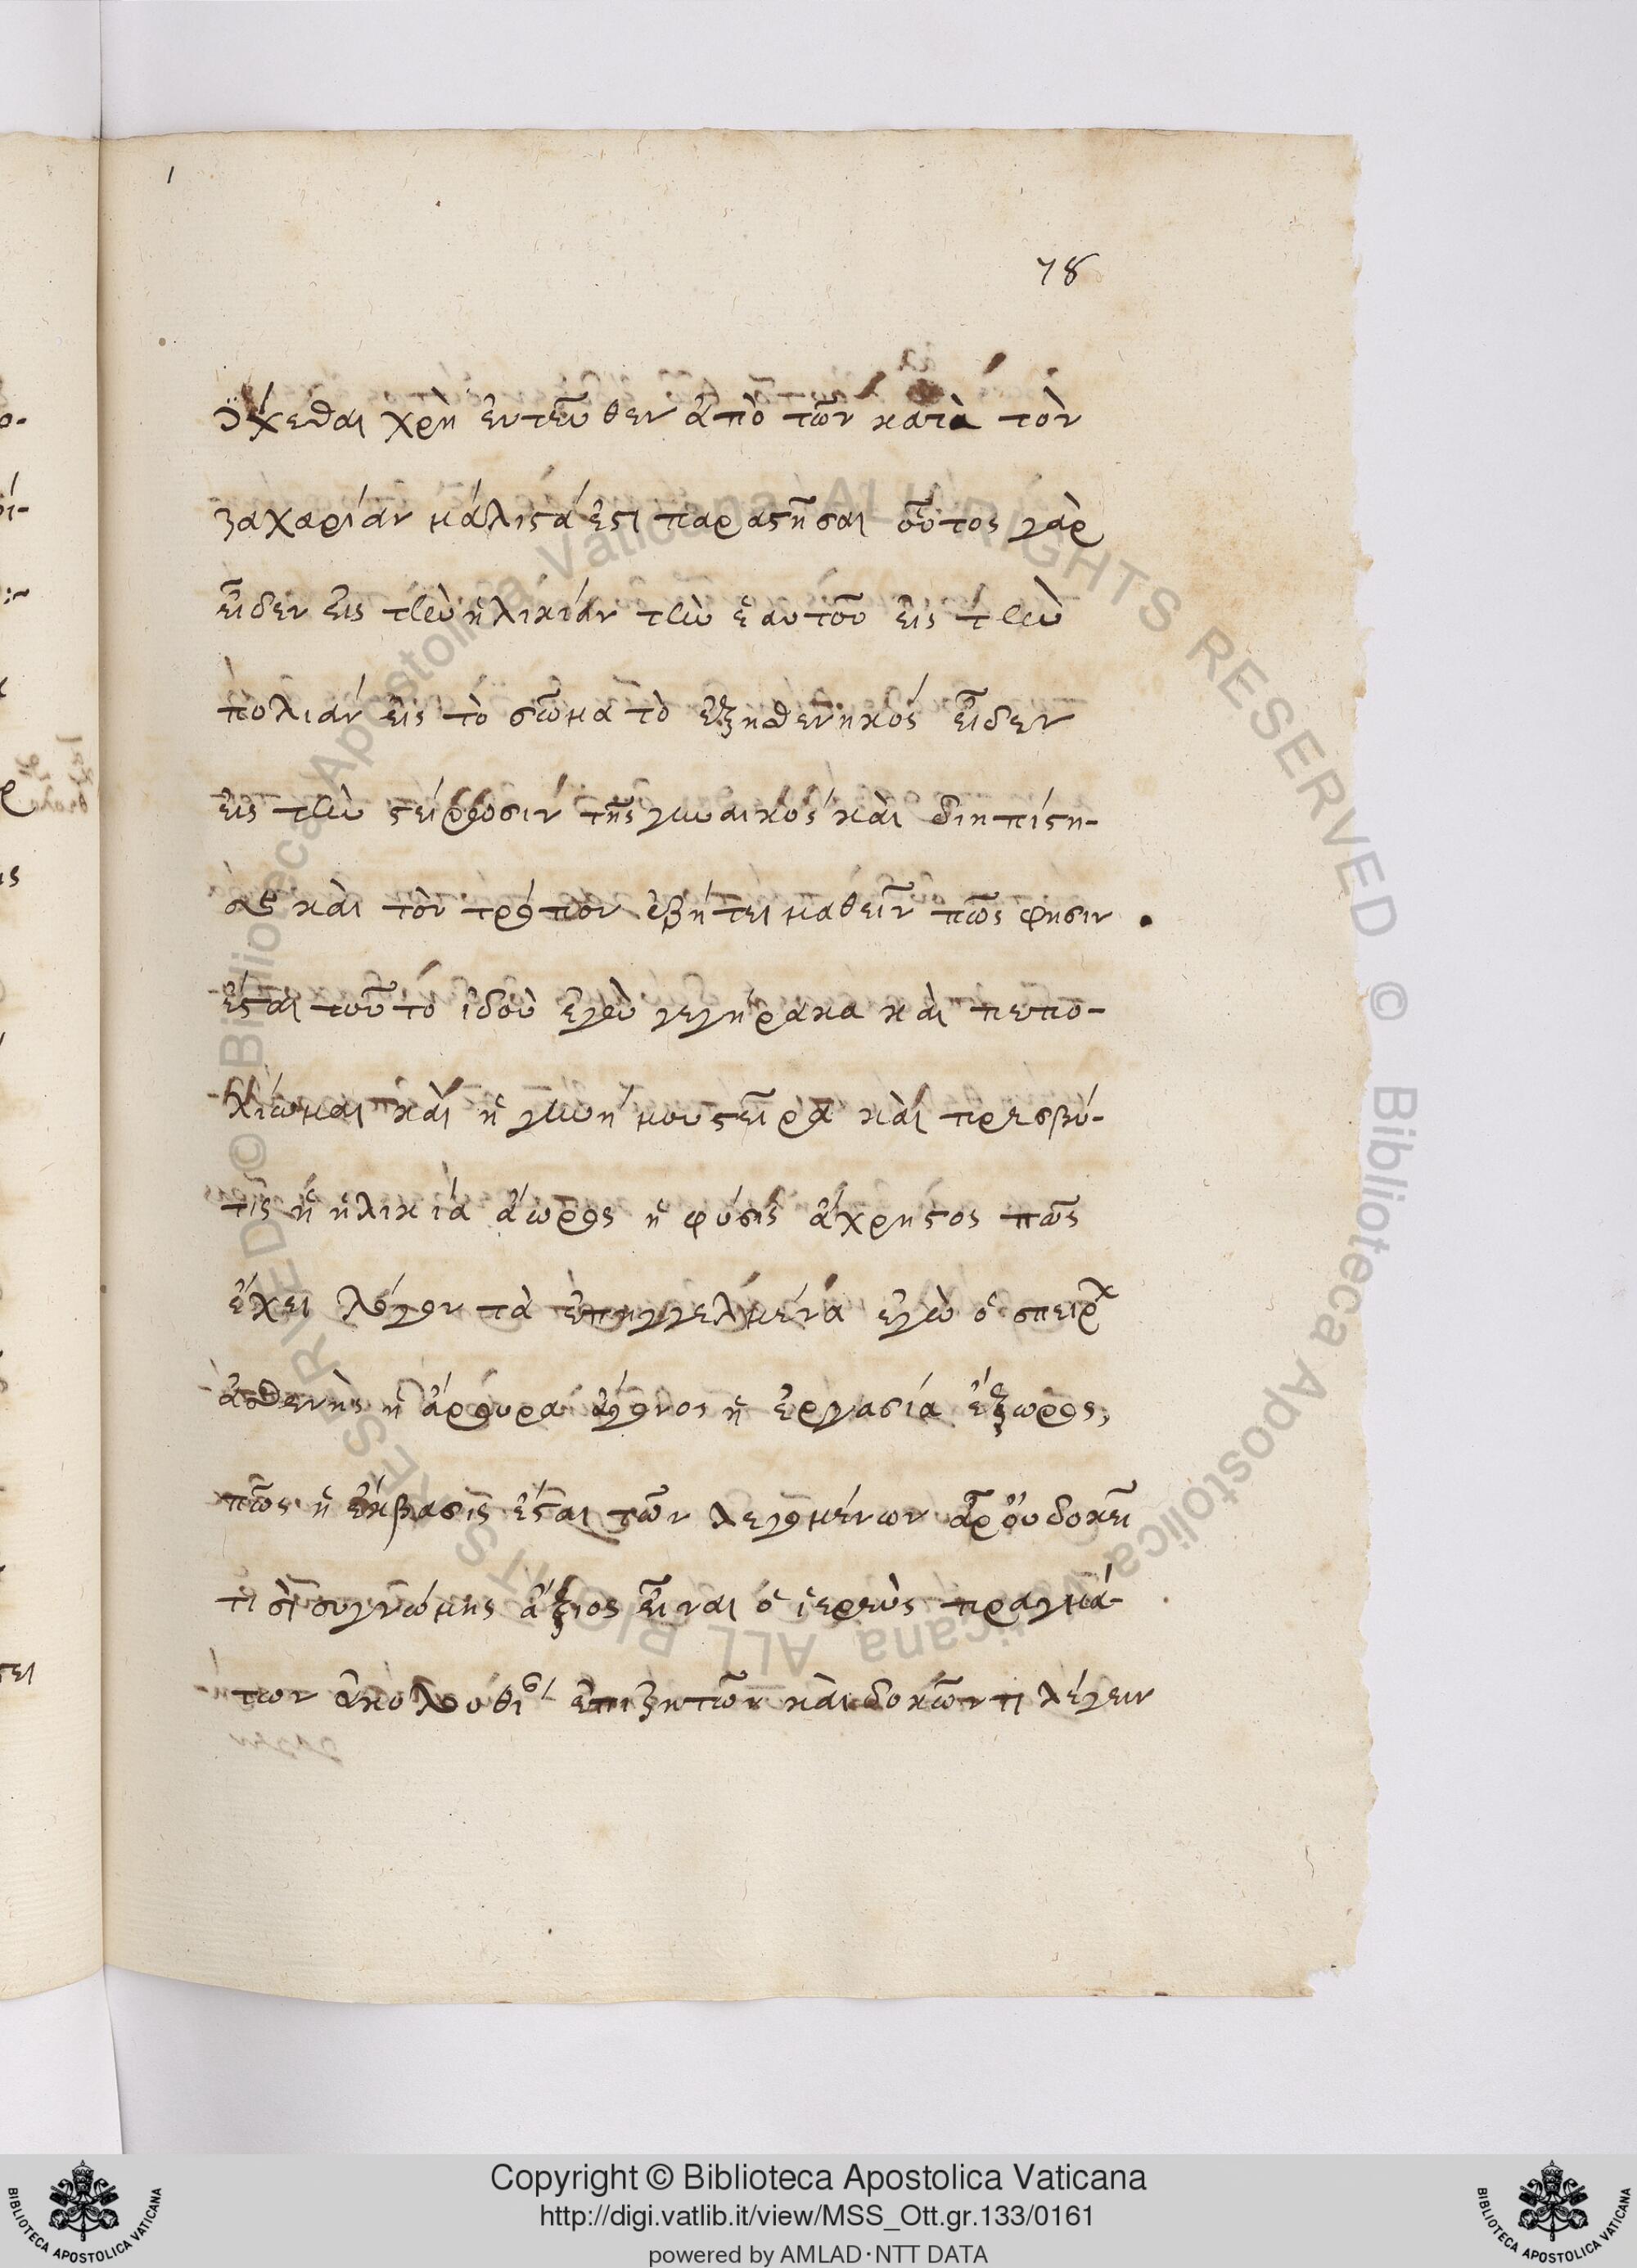 78
ὄχεσθαι χρὴ ἐντεῦθεν ἀπὸ τῶν κατὰ τὸν
ζαχαρίαν μάλιστά ἐστι παραστῆσαι οὗτος γὰρ
εἶδεν εἰς τὴν ἡλικίαν τὴν ἑαυτοῦ εἰς τὴν
πολιάν εἰς τὸ σῶμα τὸ ἐξησθενηκός εἶδεν
εἰς τὴν στείρωσιν τῆς γυναικός καὶ διηπίστη-
σε καὶ τὸν τρόπον ἐζήτει μαθεῖν πῶς φησιν
ἔσται τοῦτο ἰδοὺ ἐγὼ γεγήρακα καὶ πεπο-
λίωμαι καὶ ἡ γυνή μου στεῖρα καὶ πρεσβύ-
τις ἡ ἡλικία ἄωρος ἡ φύσις ἄχρηστος πῶς
ἔχει λόγον τὰ ἐπηγγελμένα ἐγὼ ὁ σπείρων
ἀσθενὴς ἡ ἄρουρα ἄγονος ἡ ἐργασία ἔξωρος,
πῶς ἡ ἔκβασις ἔσται τῶν λεγομένων ἆρ' οὐ δοκεῖ
τισὶ συγνώμης ἄξιος εἶναι ὁ ἱερεὺς πραγμά-
των ἀκολουθίαν ἐπιζητῶν καὶ δοκῶν τι λέγειν
Copyright © Biblioteca Apostolica Vaticana
http://digi.vatlib.it/view/MSS_Ott.gr.133/0161
powered by AMLAD·NTT DATA